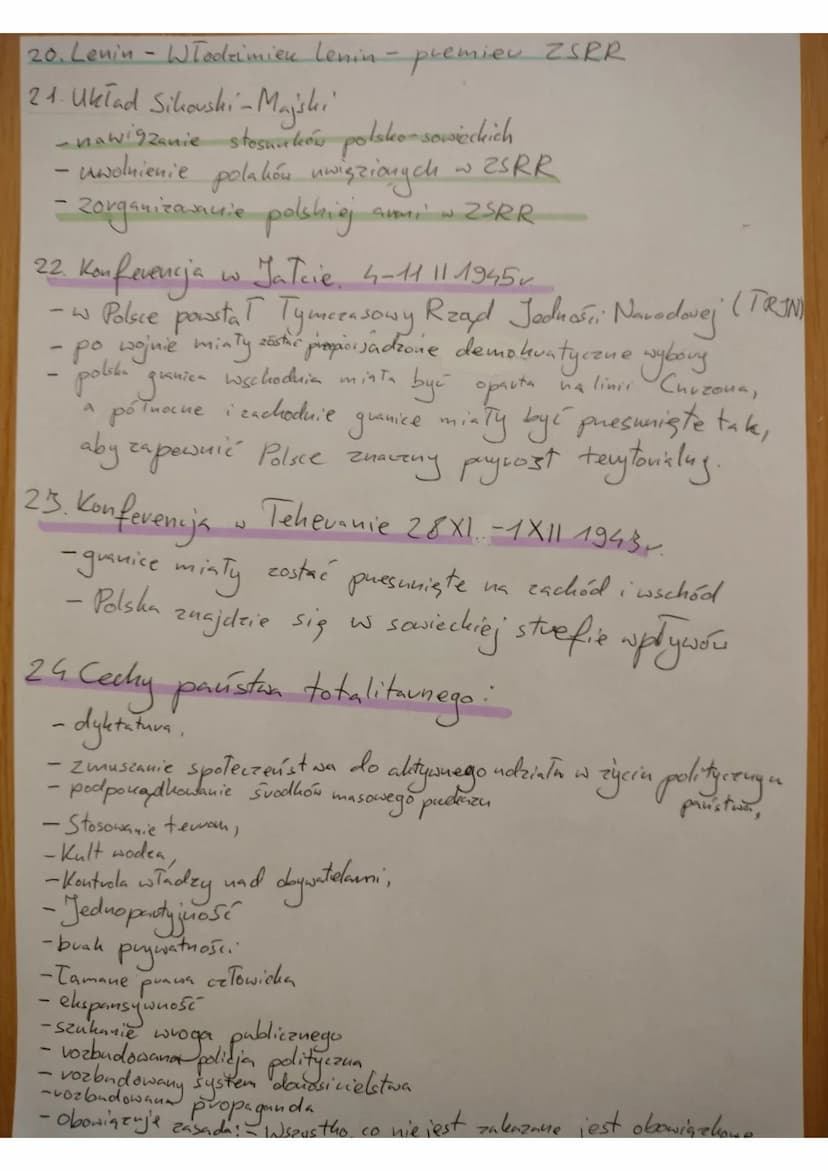 20. Lenin - Włodzimierz Lenin - premier ZSRR
21. Układ Sikorski-Majski
- nawiązanie stosunków polsko-sowieckich
- uwolnienie polaków uwięzionych w ZSRR
- zorganizowanie polskiej armi w ZSRR
22. Konferencja w Jałcie. 4-11 II 1945r
- w Polsce powstał Tymczasowy Rząd Jedności Narodowej (TRJN)
- po wojnie miały zostać przeprowadzone demokratyczne wybory
- polska granica wschodnia miała być oparta na linii Curzona,
a północne i zachodnie granice miały być przesunięte tak,
aby zapewnić Polsce znaczny przyrost terytorialny.
23. Konferencja w Teheranie 28 XI. - 1 XII 1943r.
- granice miały zostać przesunięte na zachód i wschód
- Polska znajdzie się w sowieckiej strefie wpływów
24 Cechy państwa totalitarnego:
- dyktatura,
- zmuszanie społeczeństwa do aktywnego udziału w życiu politycznym
państwa,
- podporządkowanie środków masowego przekazu
- Stosowanie terroru,
- Kult wodza,
- Kontrola władzy nad obywatelami,
- Jednopartyjność
- brak prywatności
- Łamane prawa człowieka
- ekspansywność
- szukanie wroga publicznego
- rozbudowana policja polityczna
- rozbudowany system donosicielstwa
- rozbudowana propaganda
- Obowiązuje zasada: - Wszystko co nie jest zakazane jest obowiązkowe